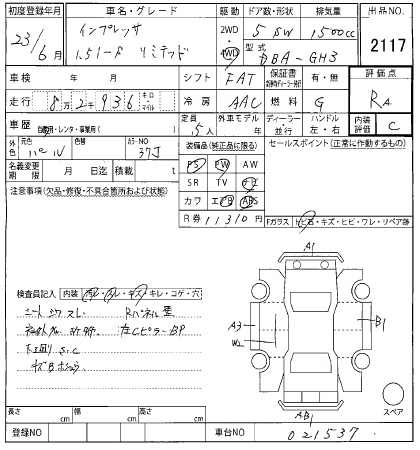 初度登録年月 車名・グレード 駆動 ドア数・形状 排気量 出品NO.
23年 6月 インプレッサ 1.5i-S リミテッド 2WD 4WD 5 SW 1500cc 2117
型式 DBA-GH3
車検 年 月 シフト FAT 保証書 有・無 評価点
走行 8万2千936 キロ マイル 冷房 AAC 燃料 G RA
車歴 自家用・レンタ・事業用( ) 定員 5人 外車モデル 年 ディーラー・並行 ハンドル 左・右 内装評価 C
外色 元色 パール 色替 カラーNO 37J 装備品(純正品に限る) セールスポイント(正常に作動するもの)
名義変更期限 月 日迄 積載 t PS PW AW
注意事項(欠品・修復・不具合箇所および状態) SR TV ナビ
カワ エアB ABS
R券 11310円 Fガラス トビ石・キズ・ヒビ・ワレ・リペア跡
A1
検査員記入 内装 汚レ・スレ・キズ・キレ・コゲ・穴
シート シワ スレ Rパネル
左Cピラー BP
下廻リ S.C
キズB
A3 W2 B1
AB1
スペア
長さ cm 幅 cm 高さ cm
登録NO 車台NO 021537